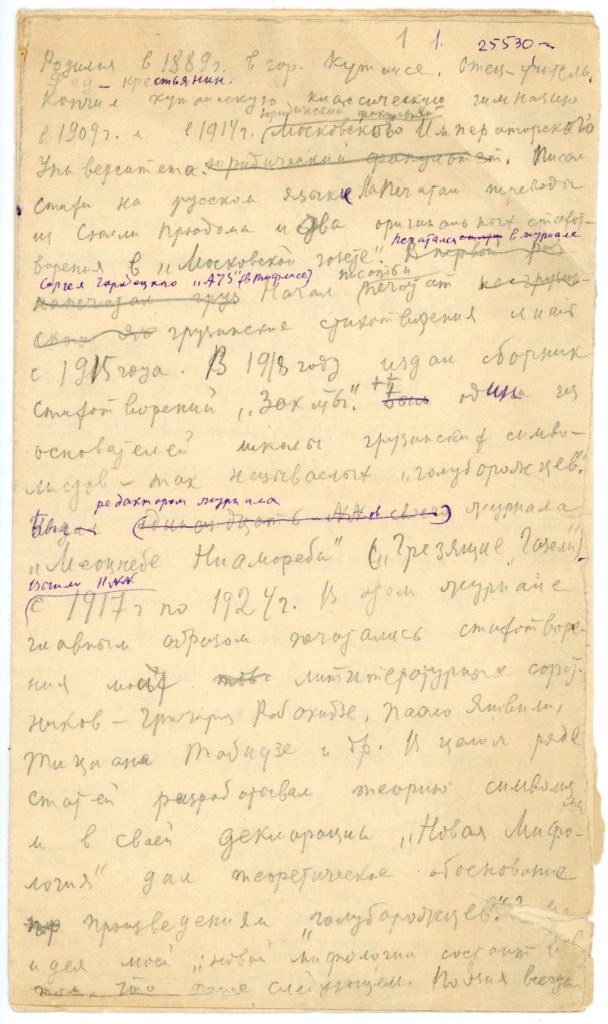 1 1. 25530-
Родился в 1889г. в гор. Кутаисе. Отец-учитель.
Дед - крестьянин.
Кончил кутаисскую классическую гимназию
юридический факультет
в 1909г. и в 1914г. Московского Императорского
Университета. юридический факультет. Писал
стихи на русском языке Напечатал переводы
из Сюлли Прюдома и два оригинальных стихот-
Печатался в журнале
ворения в "Московской газете". В первый раз
Сергея Городецкого "АРS" (в Тифлисе)
писать и
напечатал груз Начал печатат
грузинские стихотворения лишь
с 1915 года. В 1918 году издал сборник
стихотворений "
был один из
основателей школы грузинских симво-
листов - так называемых "голуборожцев".
редактором журнала
Был журнала
"Меоцнебе Ниаморебі" ("Грезящие Газели")
Вышли 11 №№
с 1917г по 1924г. В этом журнале
главным образом печатались стихотворе-
ния моих литературных сорат-
ников - Григория Робакидзе, Паоло Яшвили,
Тициана Табидзе и др. В целом ряде
статей разрабатывал теорию символизма
и в своей декларации "Новая Мифо-
логия" дал теоретическое обоснование
пр произведениям "голуборожцев".
идея моей "новой мифологии состоит в
том, что следующем. Поэзия всегда